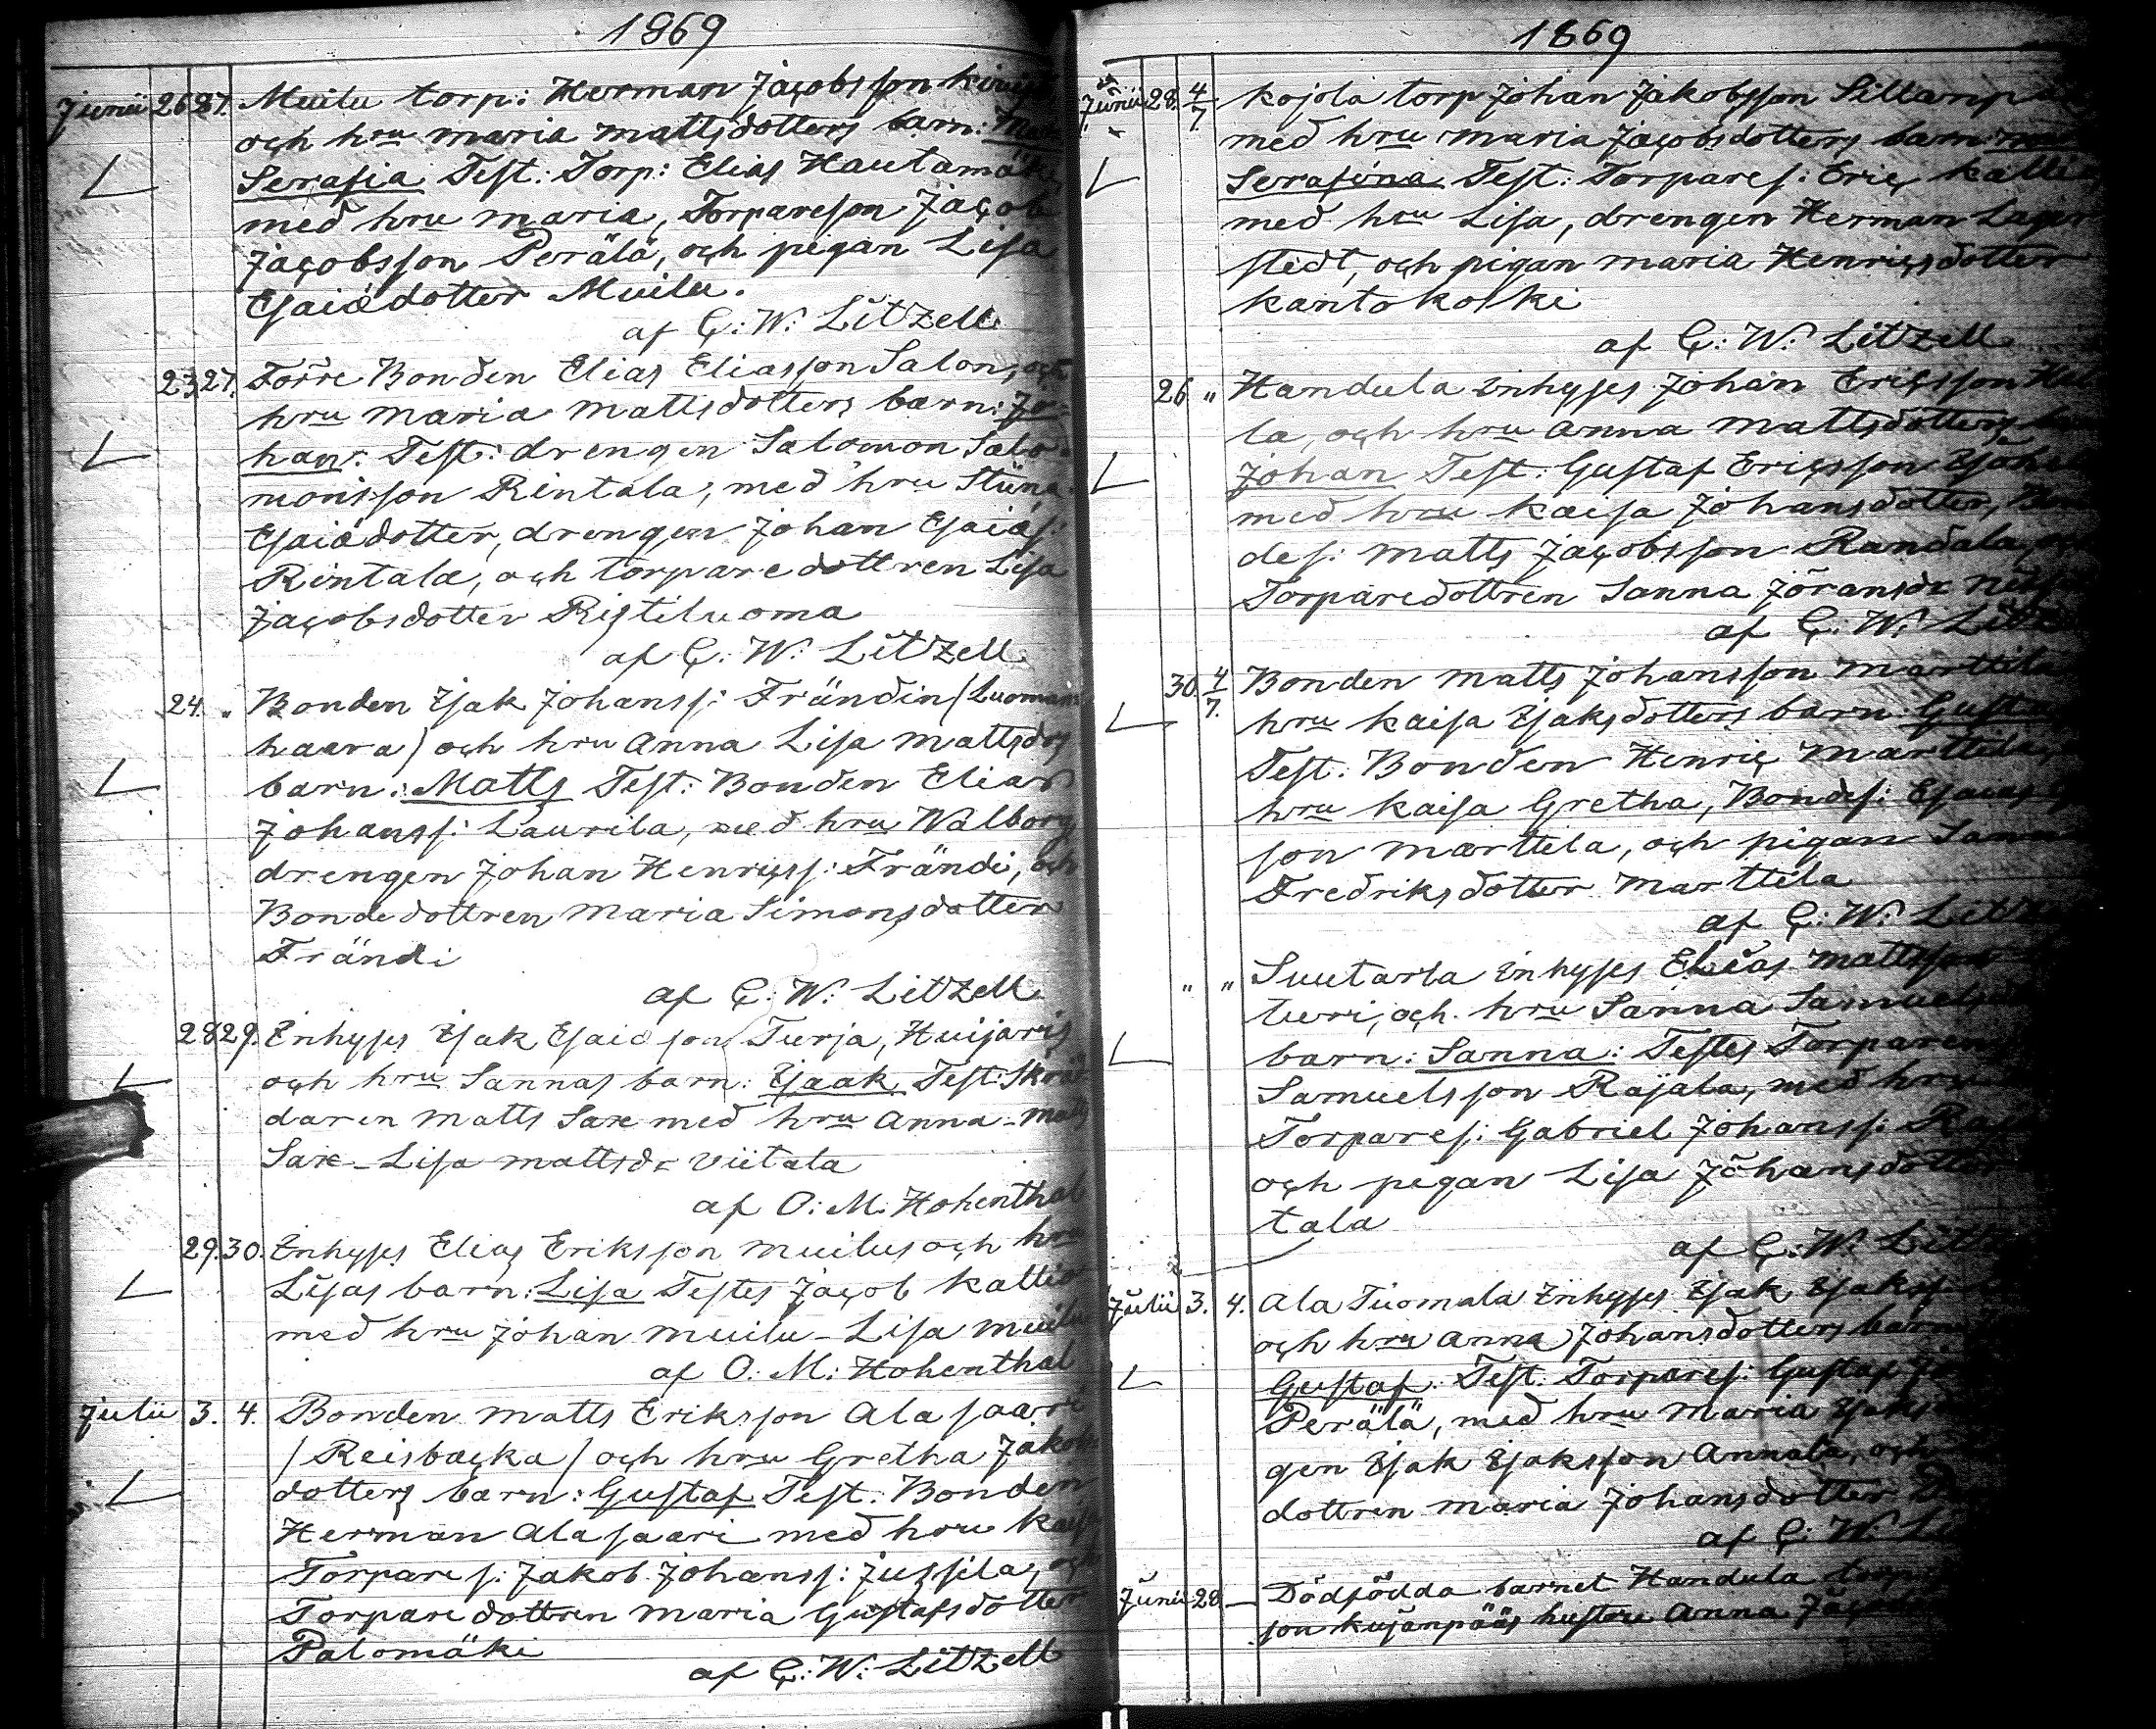 1869
Junii 26 27. Muilu torp: Herman Jacobsson
och hru Maria Mattsdotters barn:
Serafia Test: Torp: Elias Hautamäki
med hru Maria, Torpareson Jacob
Jacobsson Perälä, och pigan Lisa
Esaiædotter Muilu.
af C: W: Litzell
23 27. Förre Bonden Elias Eliasson Salon, och
hru Maria Mattsdotters barn: Jo-
han: Test: drengen Salomon Salo-
monsson Rintala, med hru Stina
Esaiædotter, drengen Johan Esaias:
Rintala, och torparedottren Lisa
Jacobsdotter Ristiluoma
af C: W: Litzell
24. " Bonden Isak Johanss: Frändin (Luoman-
haara) och hru Anna Lisa Mattsdrs
barn: Matts Test: Bonden Elias
Johanss: Laurila, med hru Walborg
drengen Johan Henricss: Frändi, och
Bondedottren Maria Simonsdotter
Frändi
af C: W: Litzell
28 29. Inhyses Isak Esaiæson Turja, Huijaris
och hru Sannas barn: Isaak Test: Skräd-
daren Matts Sax med hru Anna - Matts
Sax - Lisa Mattsdr Viitala
af O: M: Hohenthal
29. 30. Inhyses Elias Eriksson Muilus och hru
Lisas barn: Lisa Testes Jacob Kallio
med hru Johan Muilu - Lisa Muilu
af O: M: Hohenthal
Julii 3. 4. Bonden Matts Eriksson Alasaari
(Reisbacka) och hru Gretha Jakobs
dotters barn: Gustaf Test: Bonden
Herman Alasaari med hru Kaisa
Torpares: Jakob Johanss: Jussila, och
Torparedottren Maria Gustafsdotter
Palomäki
af C: W: Litzell
1869
Junii 28. 4/7. Kojola torp Johan Jakobsson
med hru Maria Jacobsdotters barn
Serafina Test: Torpares: Eric Kallio
med hru Lisa, drengen Herman Lager-
stedt, och pigan Maria Henricsdotter
Kantokoski
af C: W: Litzell
26 " Handula Inhyses Johan Ericsson
la, och hru Anna Mattsdotters
Johan Test: Gustaf Ericsson
med hru Kaisa Johansdotter, Bon-
des: Matts Jacobsson Randala, och
Torparedottren Sanna Göransdr
af C: W: Litzell
30. 4/7. Bonden Matts Johansson Marttila
hru Kaisa Isaksdotters barn Gustaf
Test: Bonden Henric Marttila,
hru Kaisa Gretha, Bondes: Esaias
son Marttila, och pigan Sanna
Fredriksdotter Marttila
af C: W: Litzell
" " Suutarla Inhyses Elias Mattsson
turi, och hru Sanna Samuels
barn: Sanna: Testes Torparen
Samuelsson Rajala, med hru
Torpares: Gabriel Johanss:
och pigan Lisa Johansdotter
tala
af C: W: Litzell
Julii 3. 4. Ala Tuomala Inhyses Isak Isakss
och hru Anna Johansdotters barn
Gustaf: Test: Torpares: Gustaf
Perälä, med hru Maria
gen Isak Isaksson Annala, och
dottren Maria Johansdotter
af C: W:
Junii 28 — Dödfödda barnet Handula torp
son Kujanpääs hustru Anna